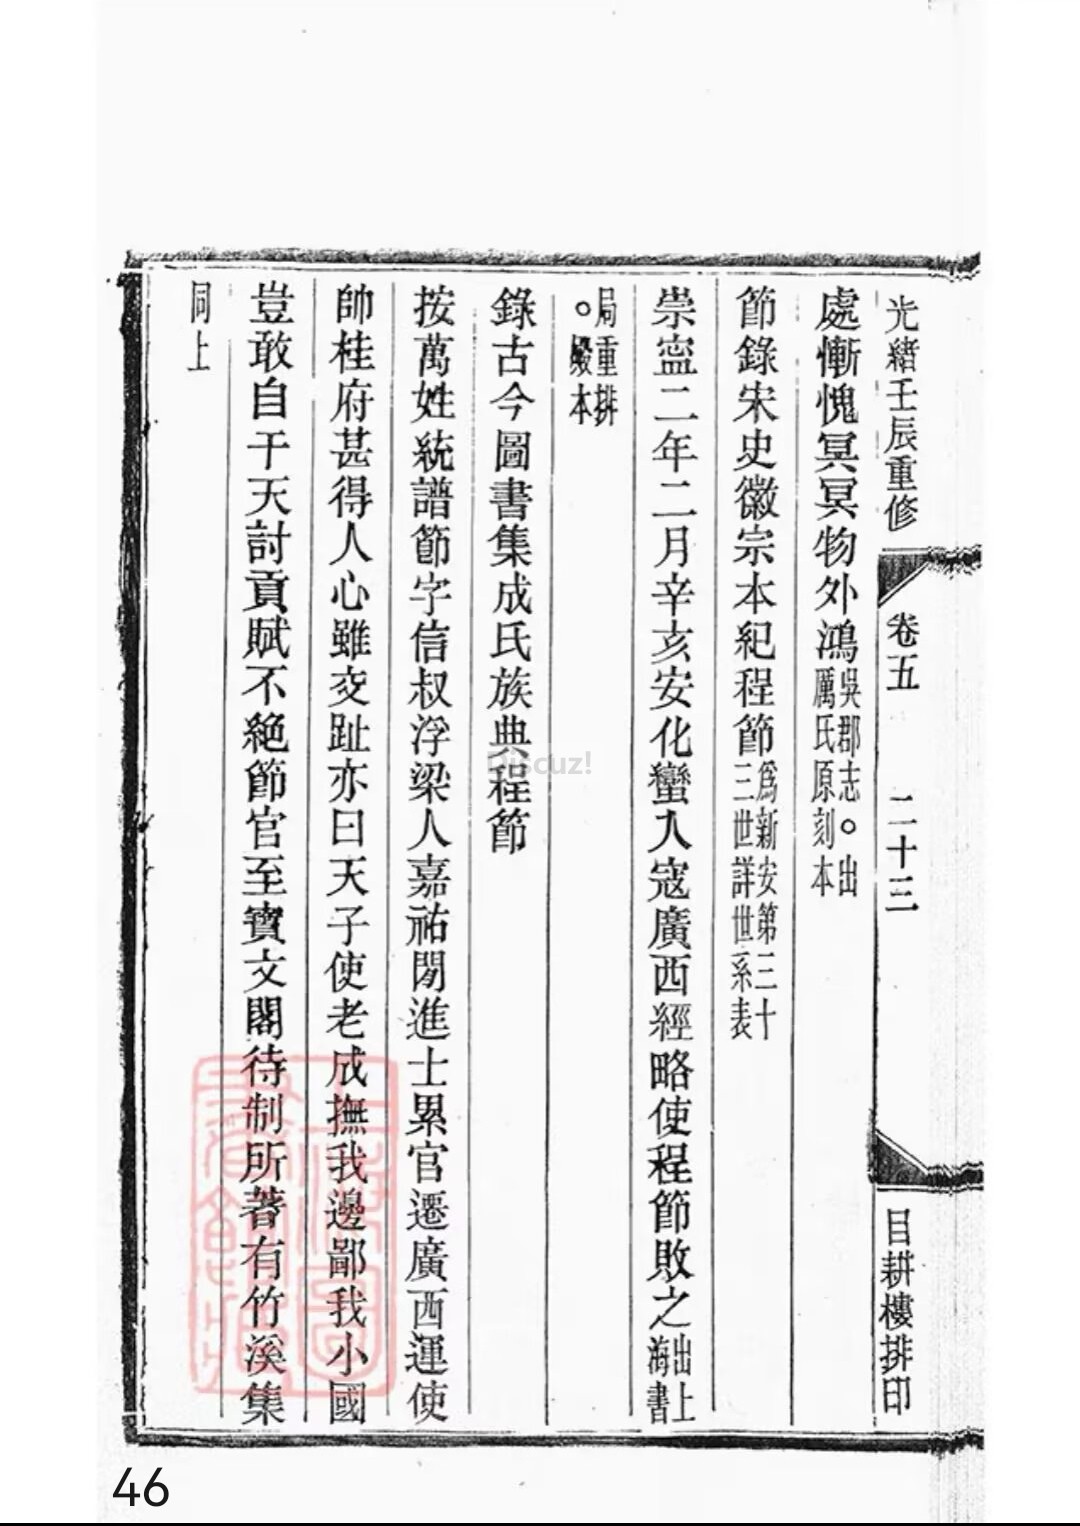 光緒壬辰重修 卷五 二十三 目耕樓排印
處慚愧冥冥物外鴻吳郡志。出厲氏原刻本
節錄宋史徽宗本紀程節為新安第三十三世詳世系表
崇寍二年二月辛亥安化蠻入寇廣西經略使程節敗之出上海書
局重排。殿本
錄古今圖書集成氏族典程節
按萬姓統譜節字信叔浮梁人嘉祐閒進士累官遷廣西運使
帥桂府甚得人心雖交趾亦曰天子使老成撫我邊鄙我小國
豈敢自干天討貢賦不絕節官至寶文閣待制所著有竹溪集
同上
Discuz!
46